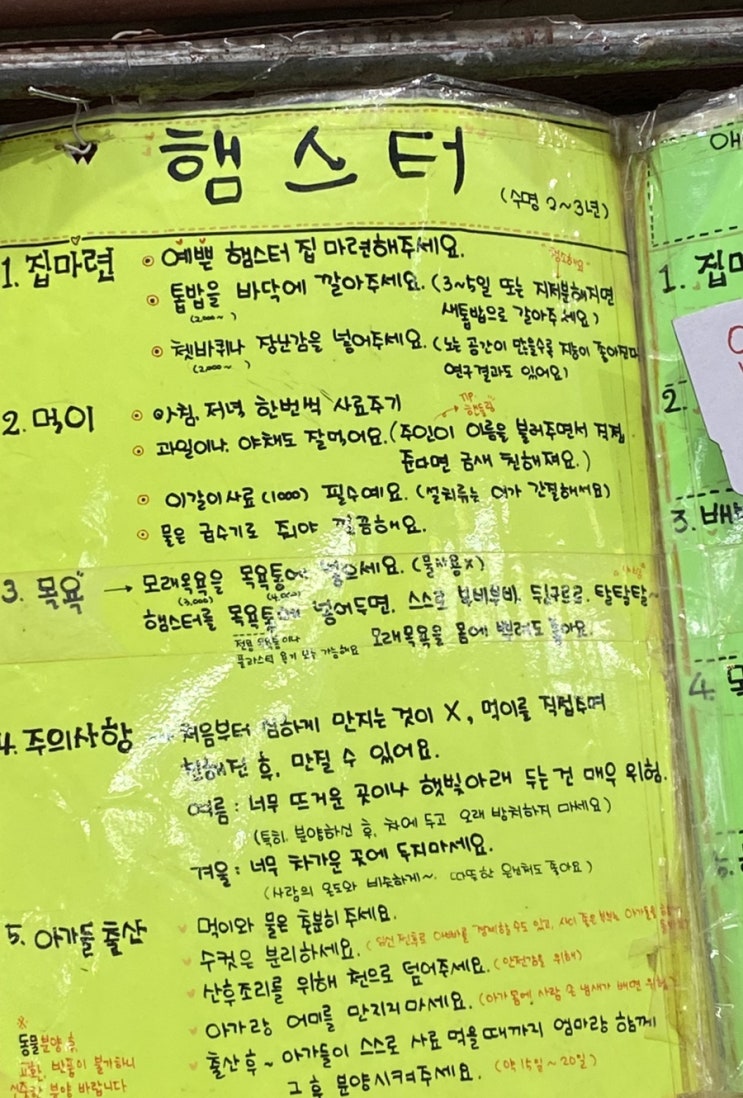 햄스터
(수명 2~3년)
1. 집마련 예쁜 햄스터 집 마련해주세요.
톱밥을 바닥에 깔아주세요. (3~5일 또는 지저분해지면
(2,000~) 새톱밥으로 갈아주세요)
쳇바퀴나 장난감을 넣어주세요. (노는 공간이 많을수록 지능이 좋아진다
(2,000~) 연구결과도 있어요)
2. 먹이 아침, 저녁 한번씩 사료주기
TIP. 핸들링
과일이나 야채도 잘먹어요. (주인이 이름을 불러주면서 직접
준다면 금새 친해져요.)
이갈이사료 (1000) 필수예요. (설치류는 이가 간질해서요)
물은 급수기로 줘야 깔끔해요.
3. 목욕 → 모래목욕을 목욕통에 넣으세요. (물사용X)
(3,000) (4,000)
햄스터를 목욕통에 넣어두면, 스스로 부비부비, 두르르르, 탈탈탈~
전용 목욕통이나 모래목욕을 몸에 뿌려도 좋아요.
플라스틱 용기 모두 가능해요
4. 주의사항 → 처음부터 심하게 만지는 것이 X, 먹이를 직접주며
친해진 후, 만질 수 있어요.
여름 : 너무 뜨거운 곳이나 햇빛아래 두는건 매우 위험.
(특히, 분양하신 후, 차에 두고 오래 방치하지 마세요)
겨울 : 너무 차가운 곳에 두지마세요.
(사람의 온도와 비슷하게~ 따뜻한 온실처도 좋아요)
5. 아가들 출산 먹이와 물은 충분히 주세요.
수컷은 분리하세요. (임신 전후로 아빠를 경계할수도 있고, 사이 좋은 부부는 아가들을
산후조리를 위해 천으로 덮어주세요. (안전감을 위해)
아가랑 어미를 만지지 마세요. (아가 몸에 사람 손 냄새가 배면 위험
출산 후~ 아가들이 스스로 사료 먹을때까지 엄마랑 함께
그 후 분양시켜주세요. (약 15일~20일)
※
동물분양 후,
교환, 반품이 불가하니
신중한 분양 바랍니다
애
1. 집마
2.
3. 배
4. 목
5.